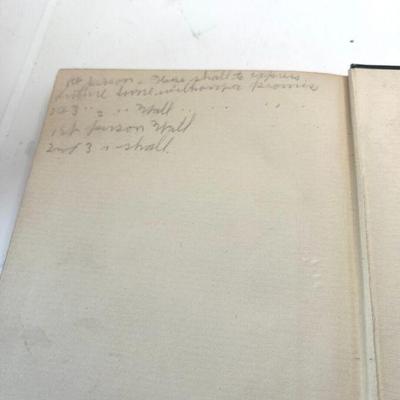 1st person - Use shall to express
future time, without a promise
2nd 3 " " " Will " " "
1st person Will
2nd 3 " shall